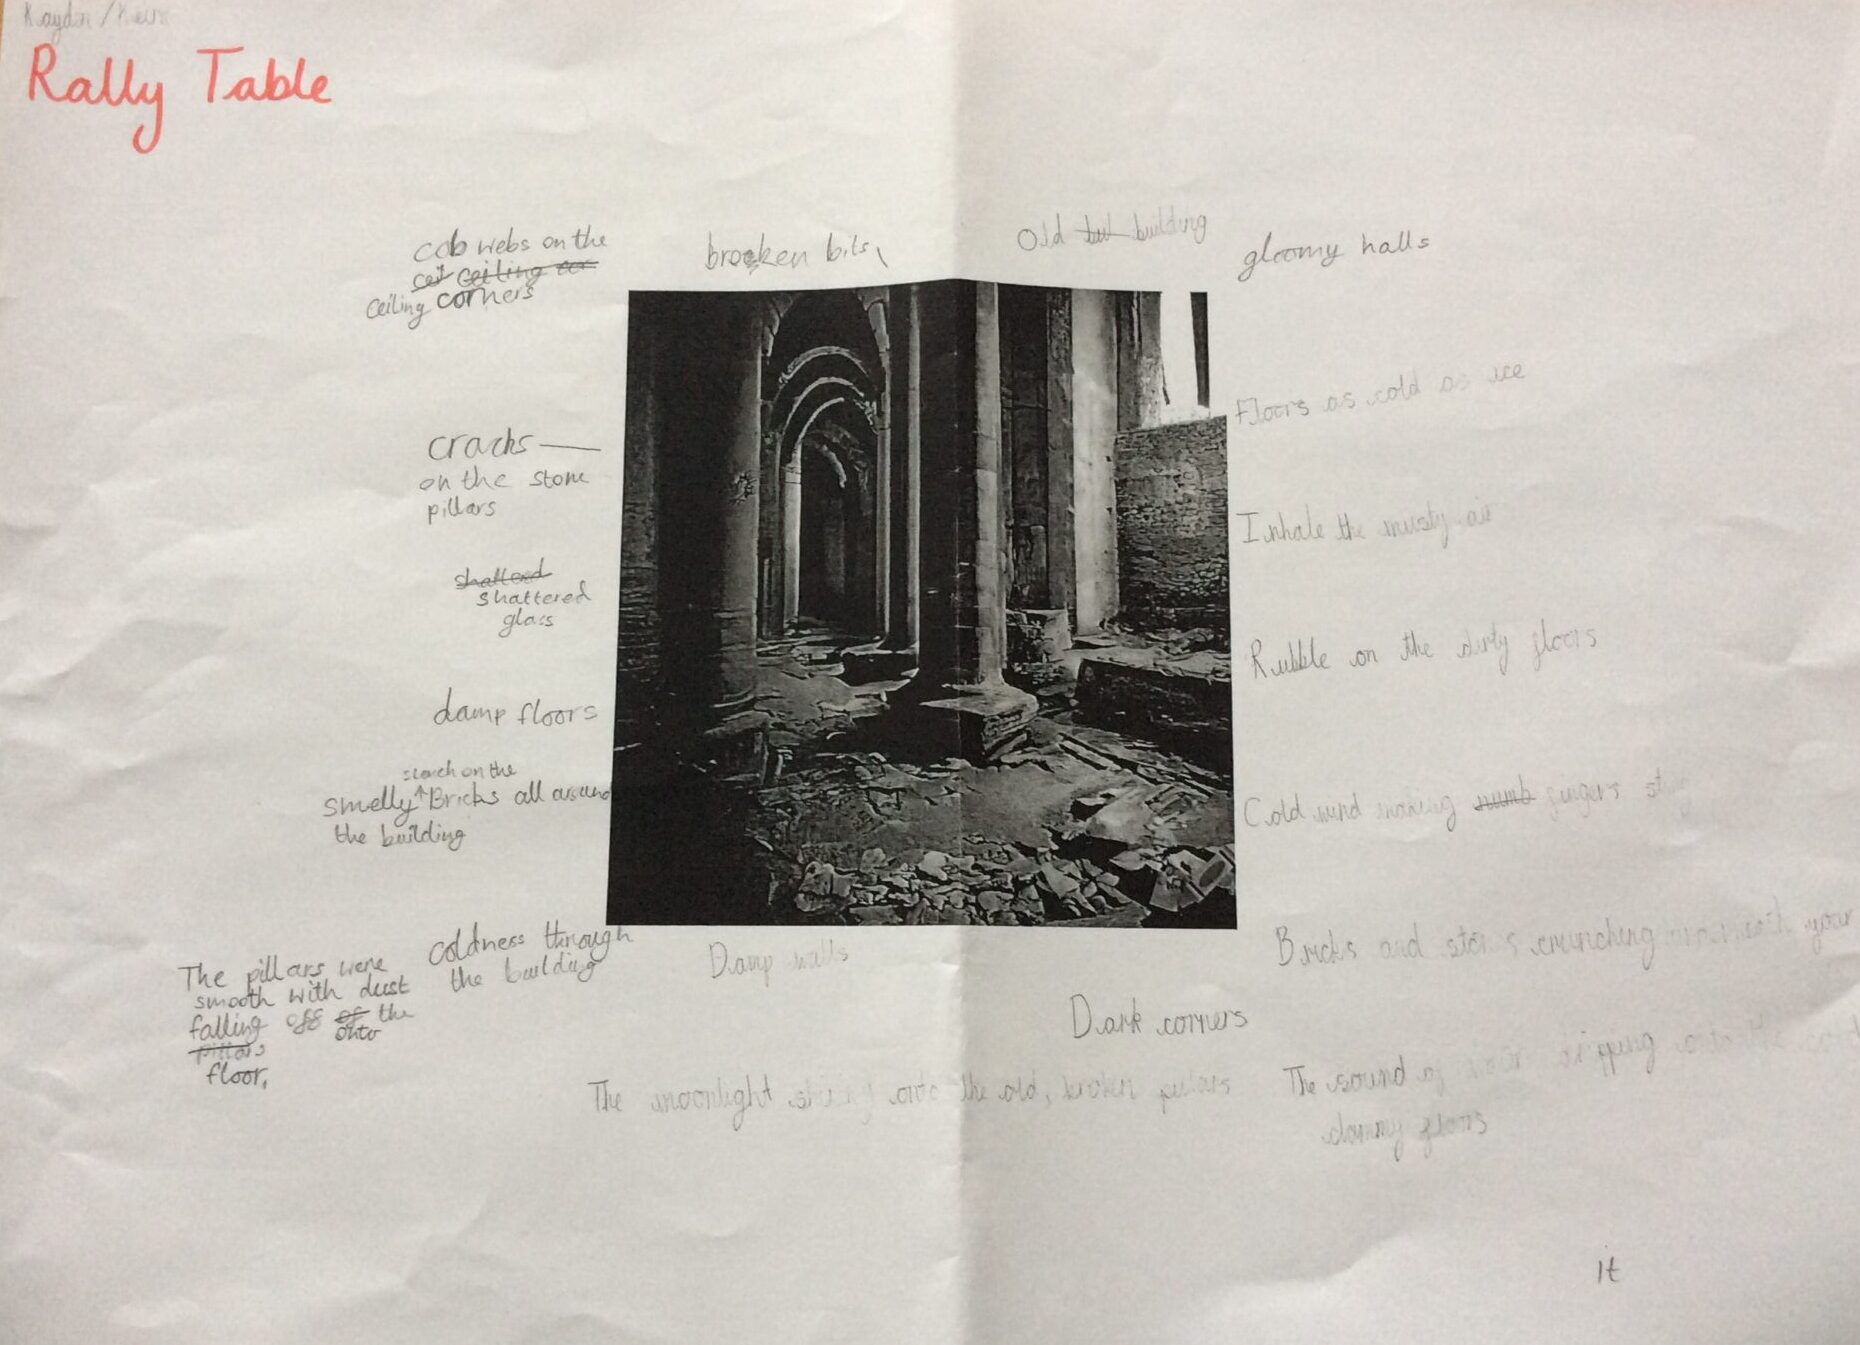 Rally Table
cob webs on the
cei ceiling cor
ceiling corners
brocken bits,
Old but building
gloomy halls
cracks
on the stone
pillars
shatterd
shattered
glass
damp floors
stench on the
smelly Bricks all around
the building
coldness through
the building
The pillars were
smooth with dust
falling off of the
onto
pillars
floor.
Floors as cold as ice
Inhale the musty air
Rubble on the dirty floors
Cold wind making numb fingers
Bricks and stones crunching underneath your
Damp walls
Dark corners
The moonlight shining onto the old, broken pillars
The sound of dripping onto the
clammy floors
it